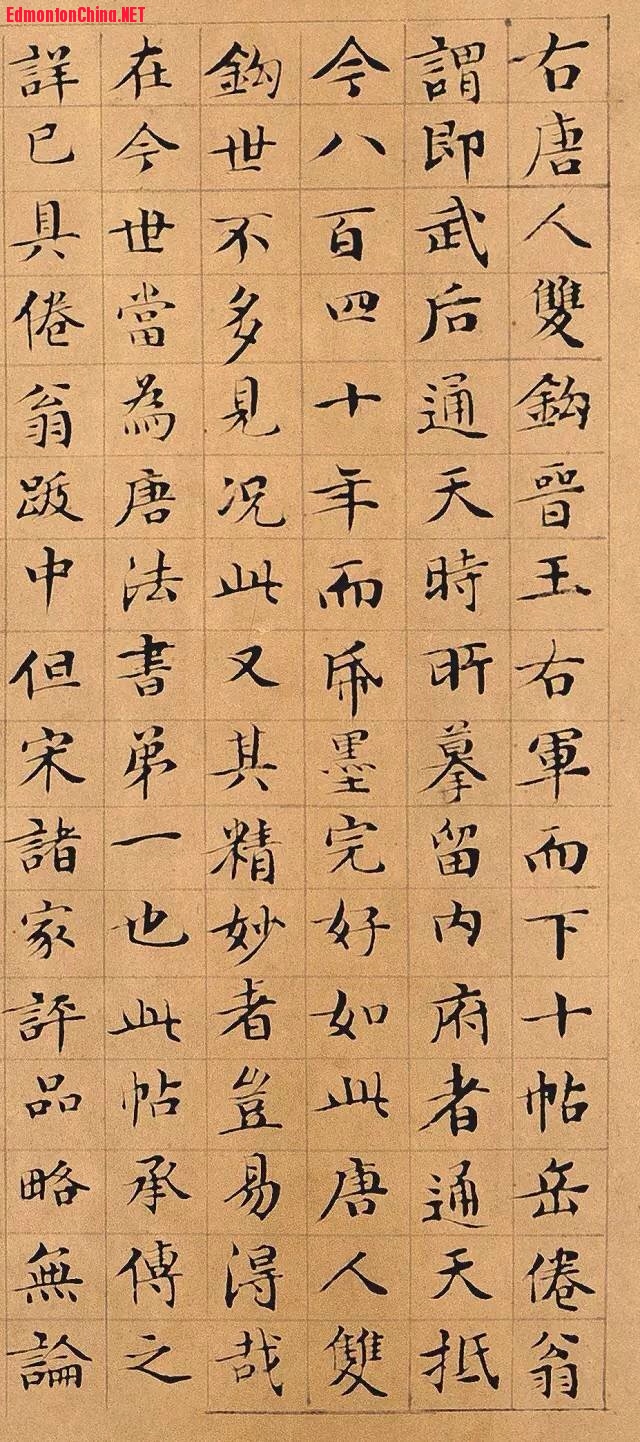 EdmontonChina.NET
右唐人雙鈎晉王右軍而下十帖岳倦翁
謂即武后通天時所摹留內府者通天抵
今八百四十年而帋墨完好如此唐人雙
鈎世不多見况此又其精妙者豈易得哉
在今世當為唐法書第一也此帖承傳之
詳已具倦翁跋中但宋諸家評品略無論